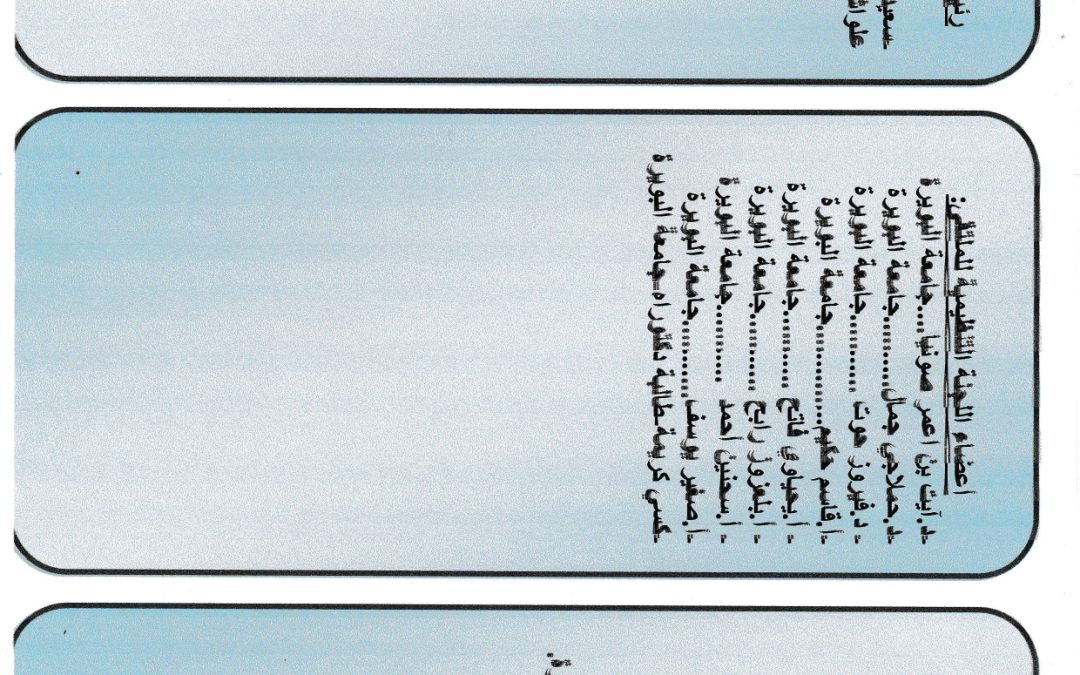 سعيد
أعضاء اللجنة التنظيمية للملتقى:
-د.آيت بن اعمر صونيا....جامعة البويرة
-د.حملاجي جمال...........جامعة البويرة
- د.فيروز حوت ...........جامعة البويرة
-أ.قاسم حكيم..............جامعة البويرة
- أ.يحياوي فاتح ...........جامعة البويرة
- أ.بلعزوز رابح ...........جامعة البويرة
- أ.سحنين أحمد ..........جامعة البويرة
-أ.صغير يوسف............جامعة البويرة
-كسي كريمة طالبة دكتوراه-جامعة البويرة